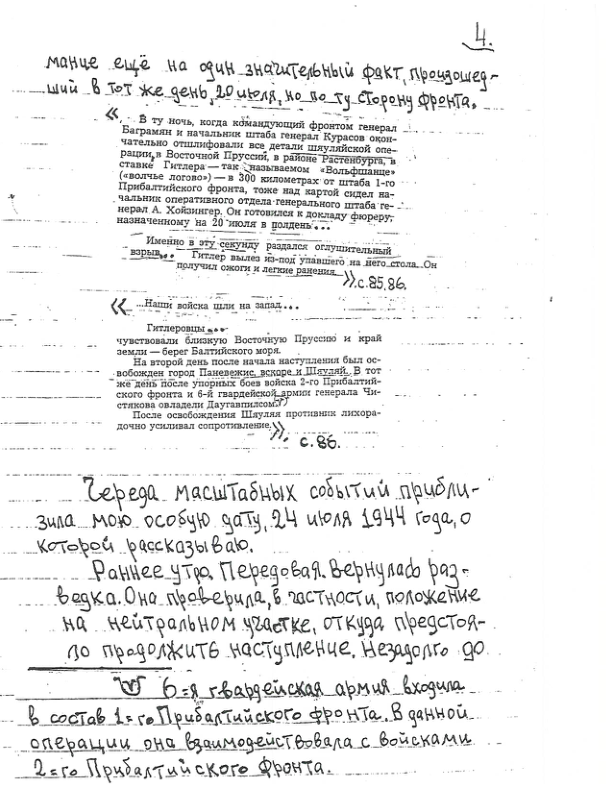 4.
манце ещё на один значительный факт, произошед-
ший в тот же день, 20 июля, но по ту сторону фронта.
« В ту ночь, когда командующий фронтом генерал
Баграмян и начальник штаба генерал Курасов окон-
чательно отшлифовали все детали шяуляйской опе-
рации, в Восточной Пруссии, в районе Растенбурга, в
ставке Гитлера — так называемом «Вольфшанце»
(«волчье логово») — в 300 километрах от штаба 1-го
Прибалтийского фронта, тоже над картой сидел на-
чальник оперативного отдела генерального штаба ге-
нерал А. Хойзингер. Он готовился к докладу фюреру,
назначенному на 20 июля в полдень...
Именно в эту секунду раздался оглушительный
взрыв... Гитлер вылез из-под упавшего на него стола. Он
получил ожоги и легкие ранения.» с.85,86.
« ...Наши войска шли на запад...
Гитлеровцы...
чувствовали близкую Восточную Пруссию и край
земли — берег Балтийского моря.
На второй день после начала наступления был ос-
вобожден город Паневежис, вскоре и Шяуляй. В тот
же день после упорных боев войска 2-го Прибалтий-
ского фронта и 6-й гвардейской армии генерала Чи-
стякова овладели Даугавпилсом.
После освобождения Шяуляя противник лихора-
дочно усиливал сопротивление.». с.86.
Череда масштабных событий прибли-
зила мою особую дату, 24 июля 1944 года, о
которой рассказываю.
Раннее утро. Передовая. Вернулась раз-
ведка. Она проверила, в частности, положение
на нейтральном участке, откуда предстоя-
ло продолжить наступление. Незадолго до
6=я гвардейская армия входила
в состав 1=го Прибалтийского фронта. В данной
операции она взаимодействовала с войсками
2=го Прибалтийского фронта.